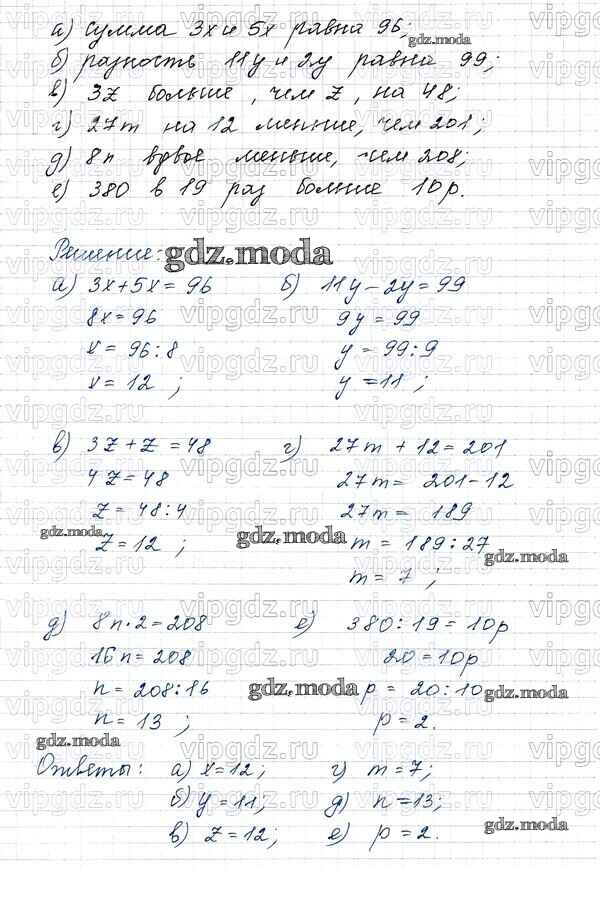 а) сумма 3x и 5x равна 96;
б) разность 11y и 2y равна 99;
в) 3z больше, чем z, на 48;
г) 27m на 12 меньше, чем 201;
д) 8n вдвое меньше, чем 208;
е) 380 в 19 раз больше 10p.
Решение:
gdz.moda
а) 3x+5x=96
8x=96
x=96:8
x=12 ;
б) 11y-2y=99
9y=99
y=99:9
y=11 ;
в) 3z+z=48
4z=48
z=48:4
z=12 ;
г) 27m+12=201
27m=201-12
27m=189
m=189:27
m=7 ;
gdz.moda
gdz.moda
gdz.moda
д) 8n·2=208
16n=208
n=208:16
n=13 ;
е) 380:19=10p
20=10p
p=20:10
p=2.
gdz.moda
gdz.moda
gdz.moda
Ответы: а) x=12; г) m=7;
б) y=11; д) n=13;
в) z=12; е) p=2.
gdz.moda
gdz.moda
vipgdz.ru